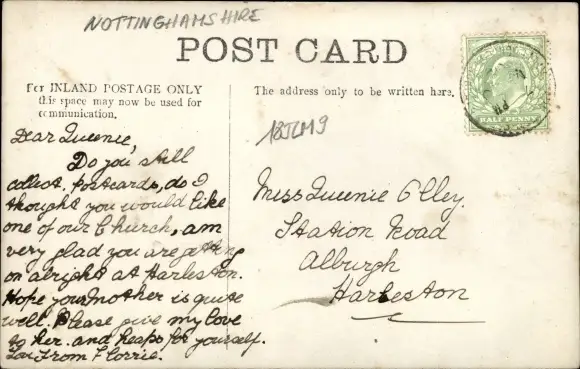 NOTTINGHAMSHIRE
POST CARD
For INLAND POSTAGE ONLY
this space may now be used for
communication.
The address only to be written here.
HALFPENNY
Dear Queenie,
Do you still
collect. Postcards, do I
thought you would like
one of our Church, am
very glad you are getting
on alright at Harleston.
Hope your mother is quite
well. Please give my love
to her. and heaps for yourself.
From Florrie.
Miss Queenie Olley.
Station Road
Alburgh
Harleston